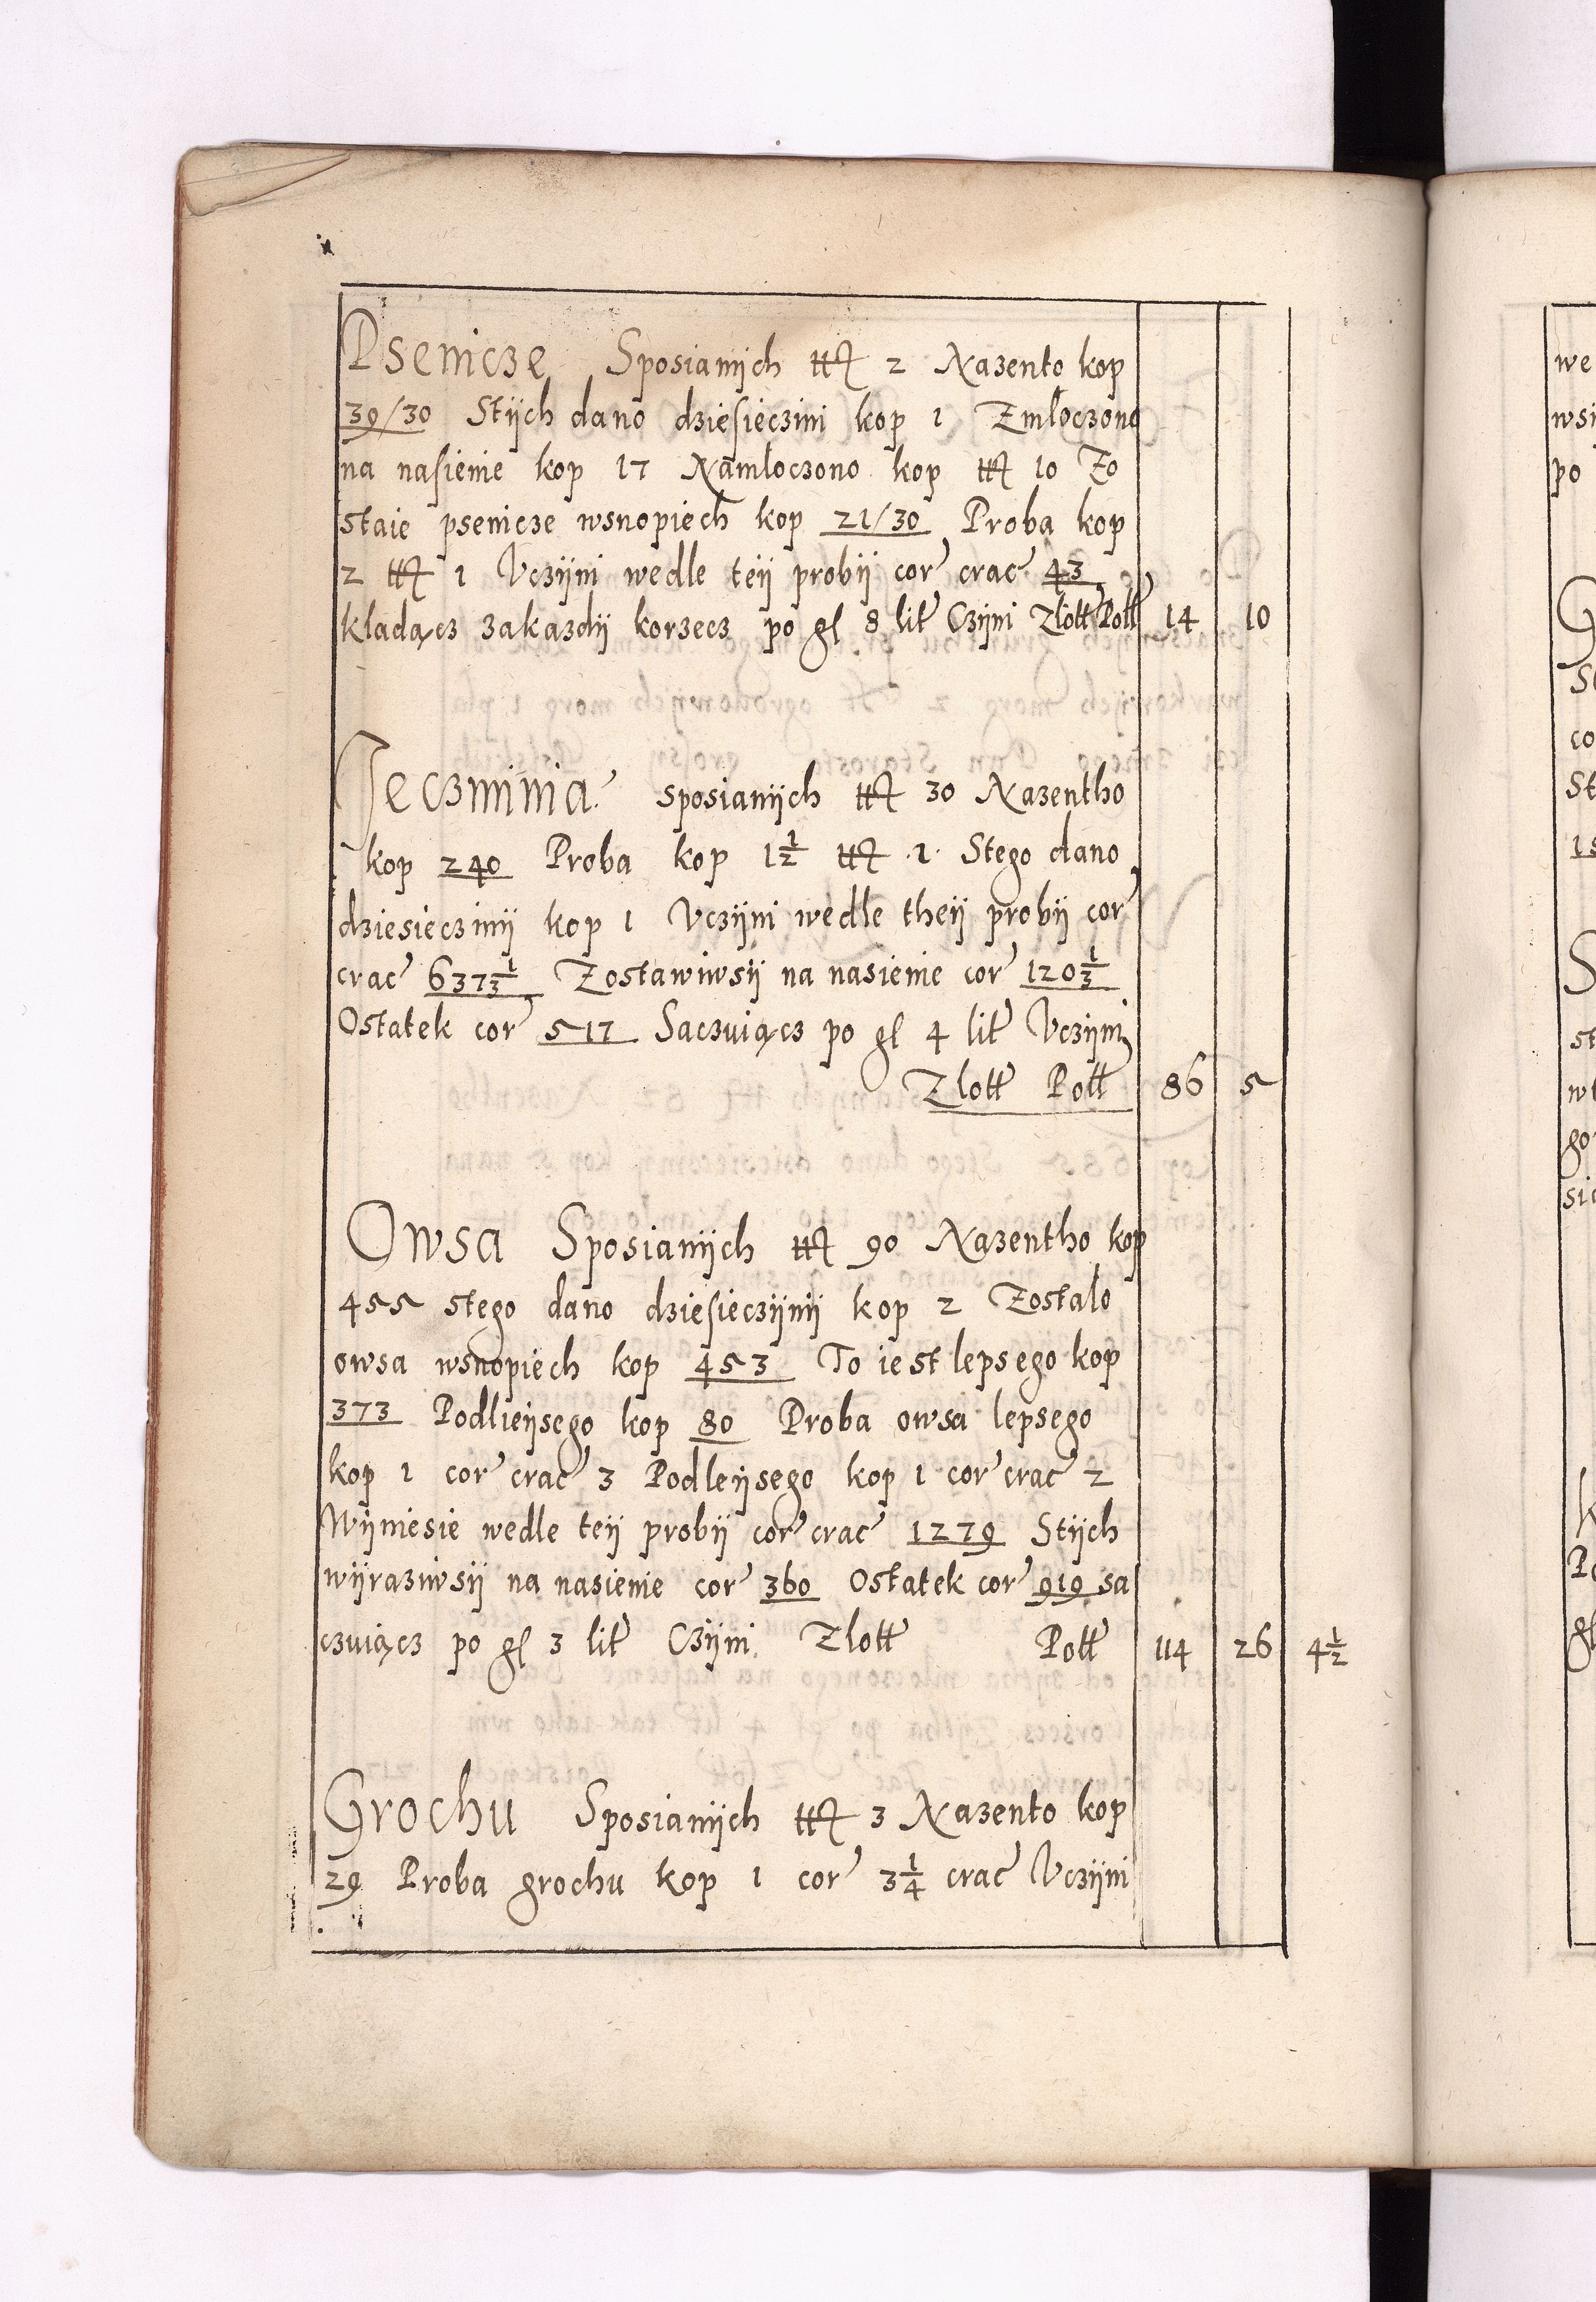 Psenicze Sposianijch ttt 2 Nazento kop
39/30 Stijch dano dziesieczini kop 1 Zmłoczono
na nasienie kop 17 Namłoczono kop ttt 10 Zo
staie psenicze wsnopiech kop 21/30 Proba kop
2 ttt 1 Vczijni wedle teij probij cor crac 43
kladącz zakazdij korzecz po gl 8 lit Czijni Zlott Poll 14 10
Jeczminia sposianijch ttt 30 Nazentho
kop 240 Proba kop 1½ ttt 1 Stego dano
dziesieczinij kop 1 Vczijni wedle theij probij cor
crac 637⅓ Zostawiwsij na nasienie cor 120⅓
Ostatek cor 517 Saczuiącz po gl 4 lit Vczijni
Zlott Poll 86 5
Owsa Sposianijch ttt 90 Nazentho kop
455 stego dano dziesieczijnij kop 2 Zostalo
owsa wsnopiech kop 453 To iest lepsego kop
373 Podlieijsego kop 80 Proba owsa lepsego
kop 1 cor crac 3 Podleijsego kop 1 cor crac 2
Wijniesie wedle teij probij cor crac 1279 Stijch
wijraziwsij na nasienie cor 360 Ostatek cor 919 sa
czuiącz po gl 3 lit Czijni Zlott Poll 114 26 4½
Grochu Sposianijch ttt 3 Nazento kop
29 Proba grochu kop 1 cor 3¼ crac Vczijni